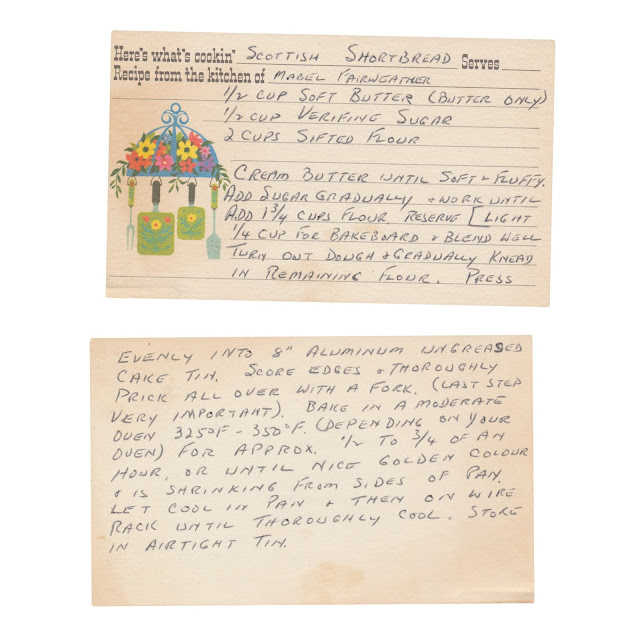 Here's what's cookin' SCOTTISH SHORTBREAD Serves
Recipe from the kitchen of MABEL FAIRWEATHER
1/2 CUP SOFT BUTTER (BUTTER ONLY)
1/2 CUP VERIFINE SUGAR
2 CUPS SIFTED FLOUR
CREAM BUTTER UNTIL SOFT + FLUFFY.
ADD SUGAR GRADUALLY + WORK UNTIL
ADD 1 3/4 CUPS FLOUR RESERVE [LIGHT
1/4 CUP FOR BAKEBOARD + BLEND WELL
TURN OUT DOUGH + GRADUALLY KNEAD
IN REMAINING FLOUR. PRESS
EVENLY INTO 8" ALUMINUM UNGREASED
CAKE TIN. SCORE EDGES + THOROUGHLY
PRICK ALL OVER WITH A FORK. (LAST STEP
VERY IMPORTANT). BAKE IN A MODERATE
OVEN 325°F - 350°F. (DEPENDING ON YOUR
OVEN) FOR APPROX. 1/2 TO 3/4 OF AN
HOUR, OR UNTIL NICE GOLDEN COLOUR
+ IS SHRINKING FROM SIDES OF PAN.
LET COOL IN PAN + THEN ON WIRE
RACK UNTIL THOROUGHLY COOL. STORE
IN AIRTIGHT TIN.